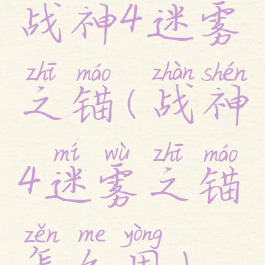 战神4迷雾
zhī máo zhàn shén
之锚(战神
mí wù zhī máo
4迷雾之锚
zěn me yòng
怎么用)